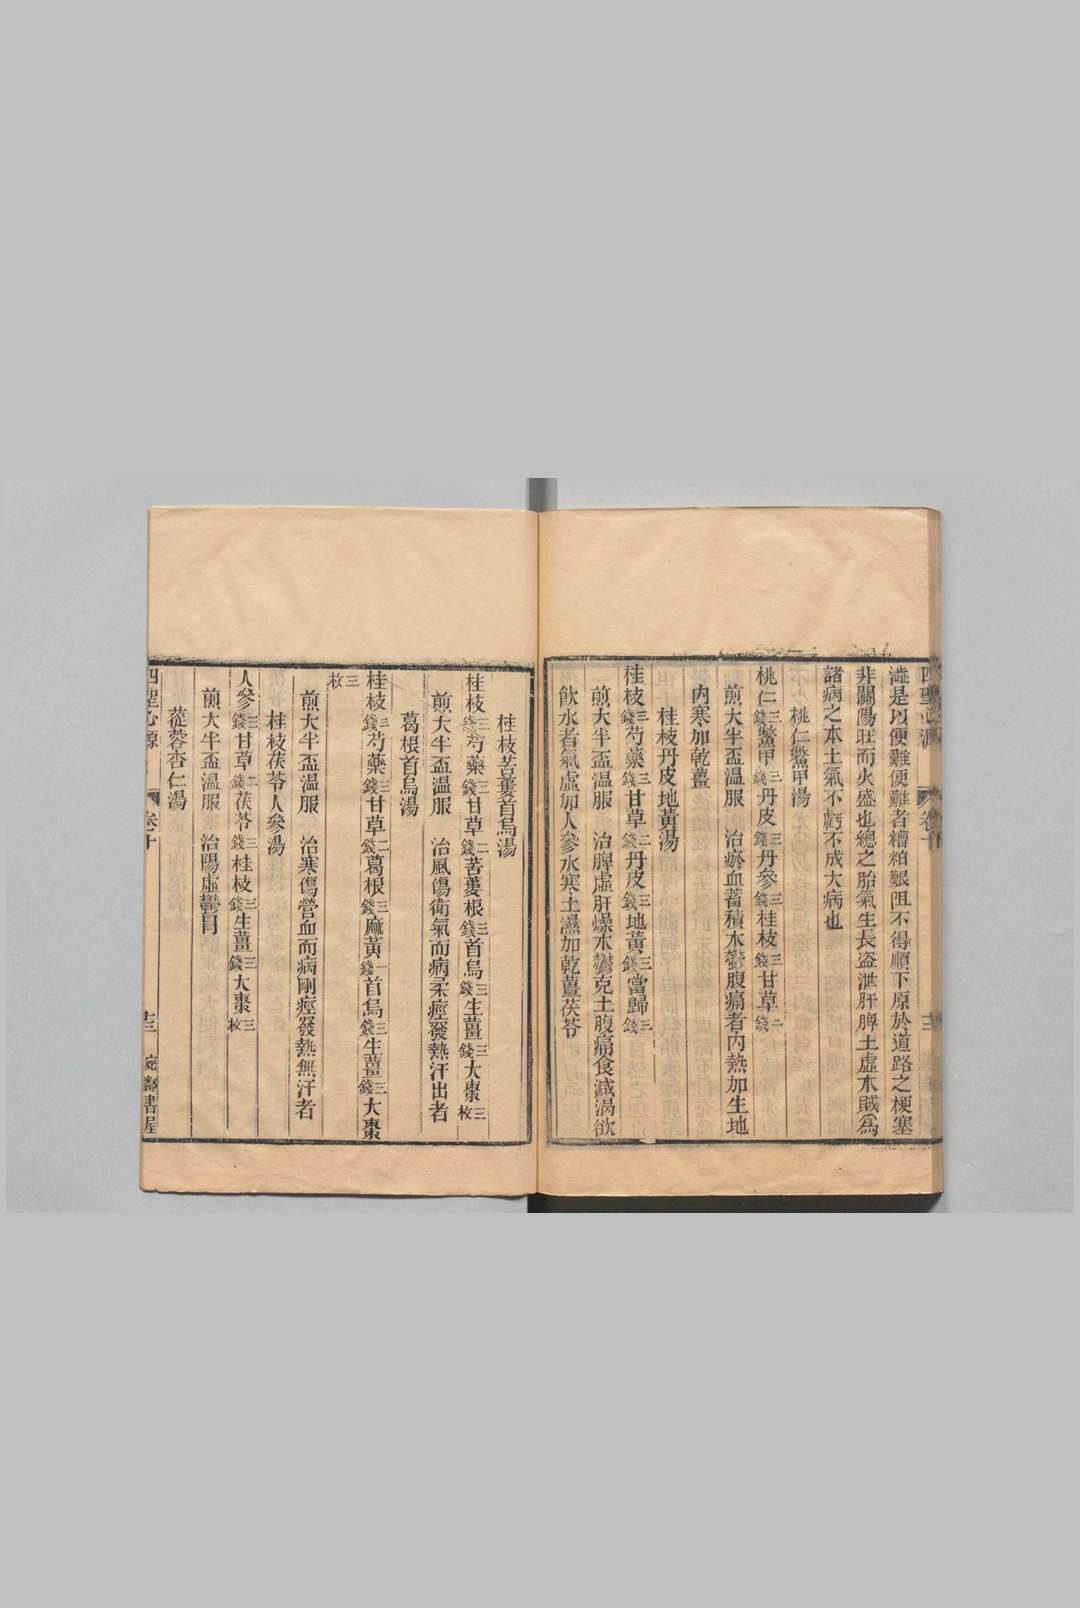 四聖心源　卷十
濇是以便難便難者糟粕艱阻不得順下原於道路之梗塞
非關陽旺而火盛也總之胎氣生長盜泄肝脾土虛木賊爲
諸病之本土氣不虧不成大病也
桃仁鱉甲湯
桃仁三錢鱉甲三錢丹皮三錢丹參三錢桂枝三錢甘草二錢
煎大半盃溫服　治瘀血蓄積木鬱腹痛者內熱加生地
內寒加乾薑
桂枝丹皮地黃湯
桂枝三錢芍藥三錢甘草二錢丹皮三錢地黃三錢當歸三錢
煎大半盃溫服　治脾虛肝燥木鬱克土腹痛食減渴欲
飲水者氣虛加人參水寒土濕加乾薑茯苓
桂枝苦蔞首烏湯
桂枝三錢芍藥三錢甘草二錢苦蔞根三錢首烏三錢生薑三錢大棗三枚
煎大半盃溫服　治風傷衛氣而病柔痙發熱汗出者
葛根首烏湯
桂枝三錢芍藥三錢甘草二錢葛根三錢麻黃一錢首烏三錢生薑三錢大棗
三枚
煎大半盃溫服　治寒傷營血而病剛痙發熱無汗者
桂枝茯苓人參湯
人參三錢甘草二錢茯苓三錢桂枝三錢生薑三錢大棗三枚
煎大半盃溫服　治陽虛鬱冒
蓯蓉杏仁湯
四聖心源　卷十　十三　宛鄰書屋